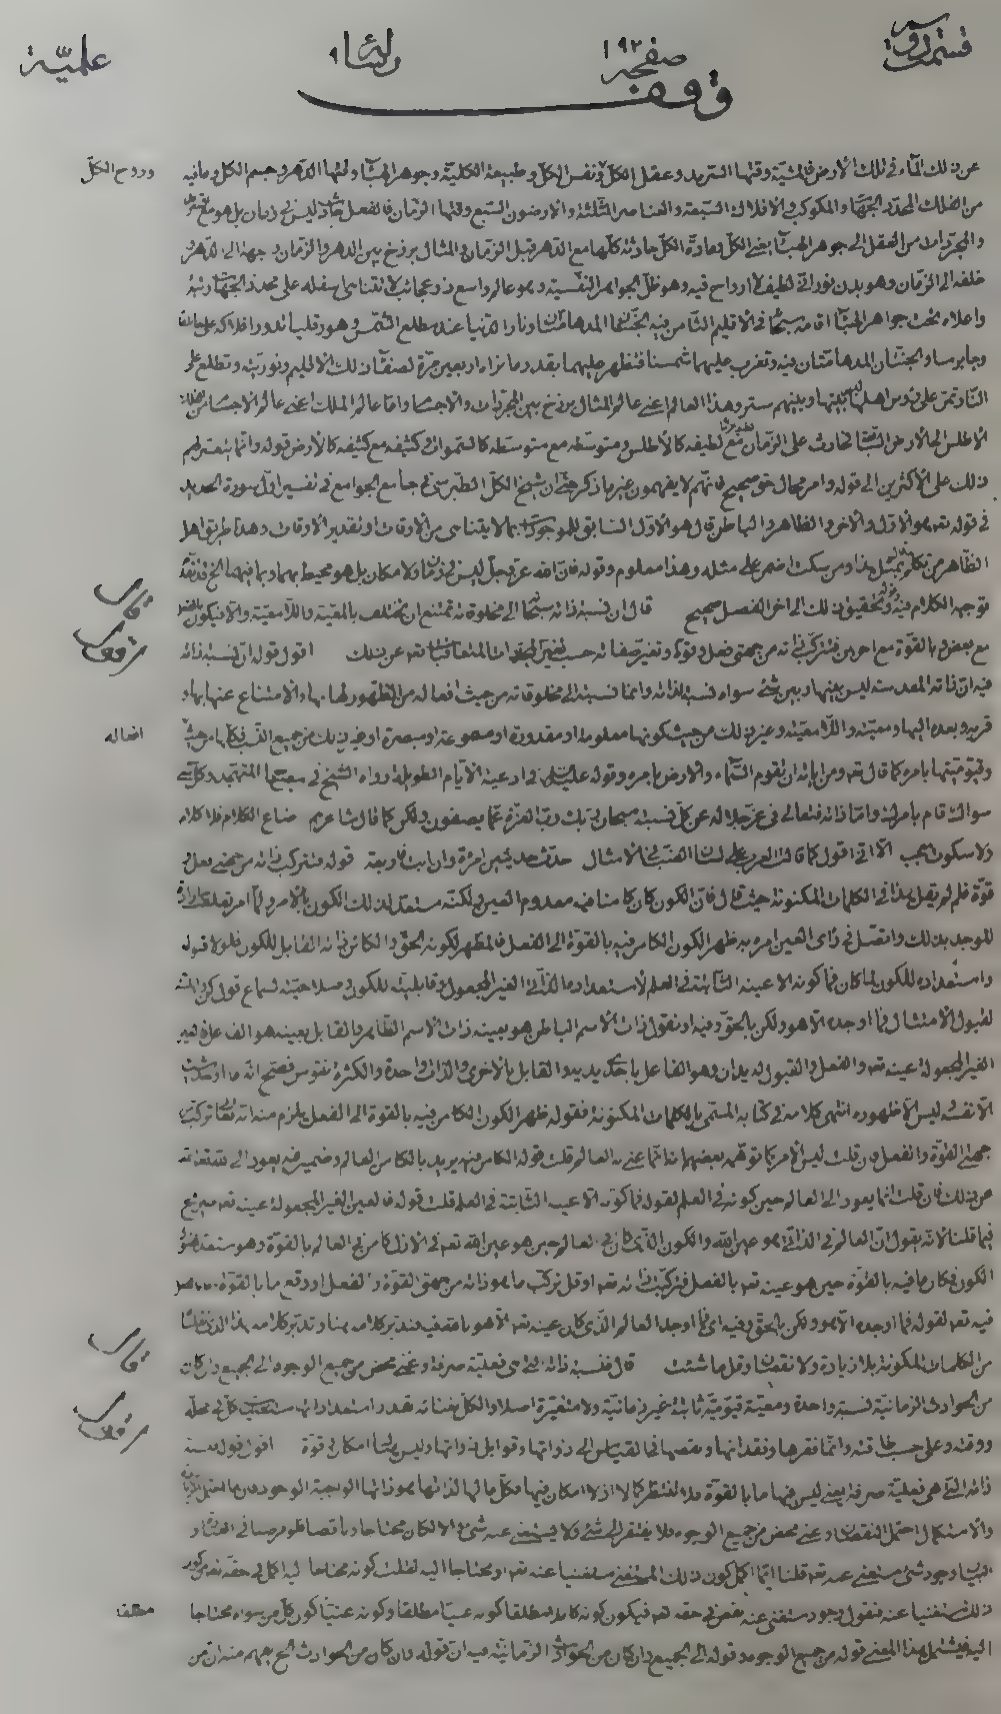 قسمت دوم صفحه ١٩٢ رسالة علمية
وقف
عن ذلك الماء في تلك الأرض فالمشية وقتها السرمد وعقل الكل ونفس الكل وطبيعة الكلية وجوهر الهباء وقتها الدهر وجسم الكل وما فيه
وروح الكل
من الفلك المحدد الجهات والمكوكب والأفلاك السبعة والعناصر الثلاثة والأرضون السبع وقتها الزمان فالفعل ليس في زمان بل هو مع
والمجردات من العقل إلى جوهر الهباء يعني الكل ومادة الكل حادثة كلها مع الدهر قبل الزمان والمثال برزخ بين الدهر والزمان وجهه إلى الدهر و
خلفه إلى الزمان وهو بدن نوراني لطيف لا أرواح فيه وهو ظل الجواهر النفسية وهو عالم واسع ذو عجائب لا تتناهى أسفله على محدد الجهات
وأعلاه تحت جواهر الهباء أقامه سبحانه في الإقليم الثامن فيه الجنتان المدهامتان ونار الدنيا عند مطلع الشمس وهورقليا تدور أفلاكه على
وجابرسا والجنتان المدهامتان فيه وتغرب عليهما شمسنا فتظهر عليهما بقدر ما نراه أربعين مرة لصفاء ذلك الإقليم ونوريته وتطلع على
النار تمر على رؤوس أهلها بينها وبينهم ستر وهذا العالم أعني عالم المثال برزخ بين المجردات والأجسام وأما عالم الملك أعني عالم الأجسام من
الأطلس إلى الأرض السفلى فحادث على الزمان مع لطيفه كالأطلس ومتوسطه مع متوسطه كالسموات وكثيفه مع كثيفه كالأرض قوله وإنما يتعسر فهم
ذلك على الأكثرين إلى قوله وأمر محال حق صحيح فإنهم لا يفهمون غير ما ذكر حتى أن شيخ الكل الطبرسي في جامع الجوامع في تفسير أول سورة الحديد
في قوله تعالى هو الأول والآخر والظاهر والباطن قال هو الأول السابق للموجودات بما لا يتناهى من الأوقات أو تقدير الأوقات وهذا طريق أهل
الظاهر من تكلم بمثل هذا ومن سكت أضمر على مثله وهذا معلوم وقوله فإن الله عز وجل ليس في زمان ولا مكان بل هو محيط بهما وبما فيهما الخ
توجيه الكلام فيه وتحقيق ذلك إلى آخر الفصل صحيح قال إن نسبة ذاته سبحانه إلى مخلوقاته تمتنع أن تختلف بالمعية واللامعية وإلا فيكون
قال
مع بعض وبالقوة مع آخرين فتتركب ذاته من جهتي فعل وقوة وتغير صفاته حسب تغير المتجددات المتعاقبات تعالى عن ذلك أقول قوله إن نسبة ذاته
فيه أن ذاته المقدسة ليس بينها وبين شيء سواه نسبة لذاته وإنما نسبته إلى مخلوقاته من حيث أفعاله من الظهور لها بها والامتناع عنها بها و
قربه وبعده إليها ومعيته واللامعيته وغير ذلك من حيث كونها معلومة أو مقدورة أو مسموعة أو مبصرة أو غير ذلك من جميع النسب فكلها من حيث
أفعاله
وقيوميتها بأمره كما قال تعالى ومن آياته أن تقوم السماء والأرض بأمره وقوله عليه السلام في أدعية الأيام الطويلة رواه الشيخ في مصباح المتهجد وكل شيء
سواك قام بأمرك وأما ذاته فتعالى في عز جلاله عن كل نسبة سبحان ربك رب العزة عما يصفون ولكن كما قال شاعرهم ضاع الكلام فلا كلام
ولا سكون يعجب إلا أني أقول كما قالت العرب على لسان الضب في الأمثال حدث حديثين امرأة وإن أبت فأربعة قوله فتتركب ذاته من جهتي فعل و
قوة فلم لم يقل هذا في الكلمات المكنونة حيث قال فإن الكون كان كامنا فيه معدوم العين ولكنه مستعد لذلك الكون بالأمر ولما أمر تعلقت إرادة
الموجد بذلك واتصل في رأي العين أمره به ظهر الكون الكامن فيه بالقوة إلى الفعل فالمظهر لكونه الحق والكائن ذاته القابل للكون فلولا قبوله
واستعداده للكون لما كان فما كونه إلا عينه الثابتة في العلم لاستعداده الذاتي الغير المجعول وقابليته للكون وصلاحيته لسماع قول كن وأهليته
لقبول الامتثال فما أوجده إلا هو ولكن بالحق وفيه أو نقول ذات الاسم الباطن هو بعينه ذات الاسم الظاهر والقابل بعينه هو الفاعل فالعين
الغير المجعولة عينه تعالى والفعل والقبول له يدان وهو الفاعل بإحدى يديه والقابل بالأخرى والذات واحدة والكثرة نقوش فصح أنه ما أوجد شيئا
إلا نفسه وليس إلا ظهوره انتهى كلامه في كتابه المسمى بالكلمات المكنونة فقوله ظهر الكون الكامن فيه بالقوة إلى الفعل يلزم منه أنه تعالى تركب من
جهتي القوة والفعل فإن قلت ليس الأمر كما توهمه بعضهم إنما عنى به العالم قلت قوله الكامن فيه يريد بالكامن العالم وضمير فيه يعود إلى الله تعالى
عن ذلك فإن قلت إنما يعود إلى العالم حين كونه في العلم لقوله فما كونه إلا عينه الثابتة في العلم قلت قوله فالعين الغير المجعولة عينه تعالى صريح
فيما قلنا لأنه يقول إن العالم في الذات هو عين الله والكون الذي كان في العالم حين هو عين الله تعالى في الأزل كامن في العالم بالقوة وهو مستعد لهذا
الكون فكان ما فيه بالقوة حين هو عينه تعالى بالفعل فتركبت ذاته تعالى أو قل تركب ما هو ذاته من جهتي القوة والفعل أو وقع ما بالقوة
فيه تعالى لقوله فما أوجده إلا هو ولكن بالحق وفيه أي فما أوجد العالم الذي كان عينه تعالى إلا هو فافقه فتدبر كلامه هنا وتدبر كلامه هذا الذي نقلنا
من الكلمات المكنونة بلا زيادة ولا نقصان وقل ما شئت قال فنسبة ذاته التي هي فعلية صرفة وغنى محض من جميع الوجوه إلى الجميع وإن كان
قال
من الحوادث الزمانية نسبة واحدة ومعية قيومية ثابتة غير زمانية ولا متغيرة أصلا والكل بغنائه بقدر استعداداتها مستغنيات كل في محله
ووقته وعلى حسب طاقته وإنما فقرها وفقدانها ونقصها بالقياس إلى ذواتها وقوابل ذواتها وليس هناك إمكان وقوة أقول قوله نسبة
ذاته التي هي فعلية صرفة يعني ليس فيها ما بالقوة فلا تنتظر كمالا إذ لا إمكان فيها فكل ما لها لذاتها هو ذاتها الواجبة الوجود
والاستكمال احتمل النقصان وغنى محض من جميع الوجوه فلا يفتقر إلى شيء ولا يستغني عنه شيء وإلا لكان محتاجا وناقصا
وجود شيء مستغنى عنه تعالى قلنا أيما أكمل كون ذلك المستغني مستغنيا عنه تعالى أو محتاجا إليه لقلت كونه محتاجا إليه أكمل في حقه تعالى من كون
ذلك مستغنيا عنه فنقول وجود مستغن عنه نقص في حقه تعالى فيكون كونه كاملا مطلقا كونه غنيا مطلقا وكونه غنيا كون كل من سواه محتاجا
مطلقا
إليه فيشتمل هذا المعنى قوله من جميع الوجوه وقوله إلى الجميع وإن كان من الحوادث الزمانية فيه أن قوله وإن كان من الحوادث الخ يفهم منه أن من